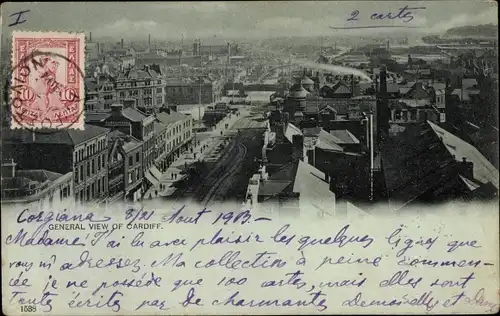 I
2 cartes
Corgiana 8/21 Aout 1903.-
GENERAL VIEW OF CARDIFF.
Madame! J'ai lu avec plaisir les quelques lignes que
vous m'adressez. Ma collection à peine commen-
cée je ne possède que 100 cartes, mais elles sont
toute écrits par de charmantes demoiselles et Dames
1538